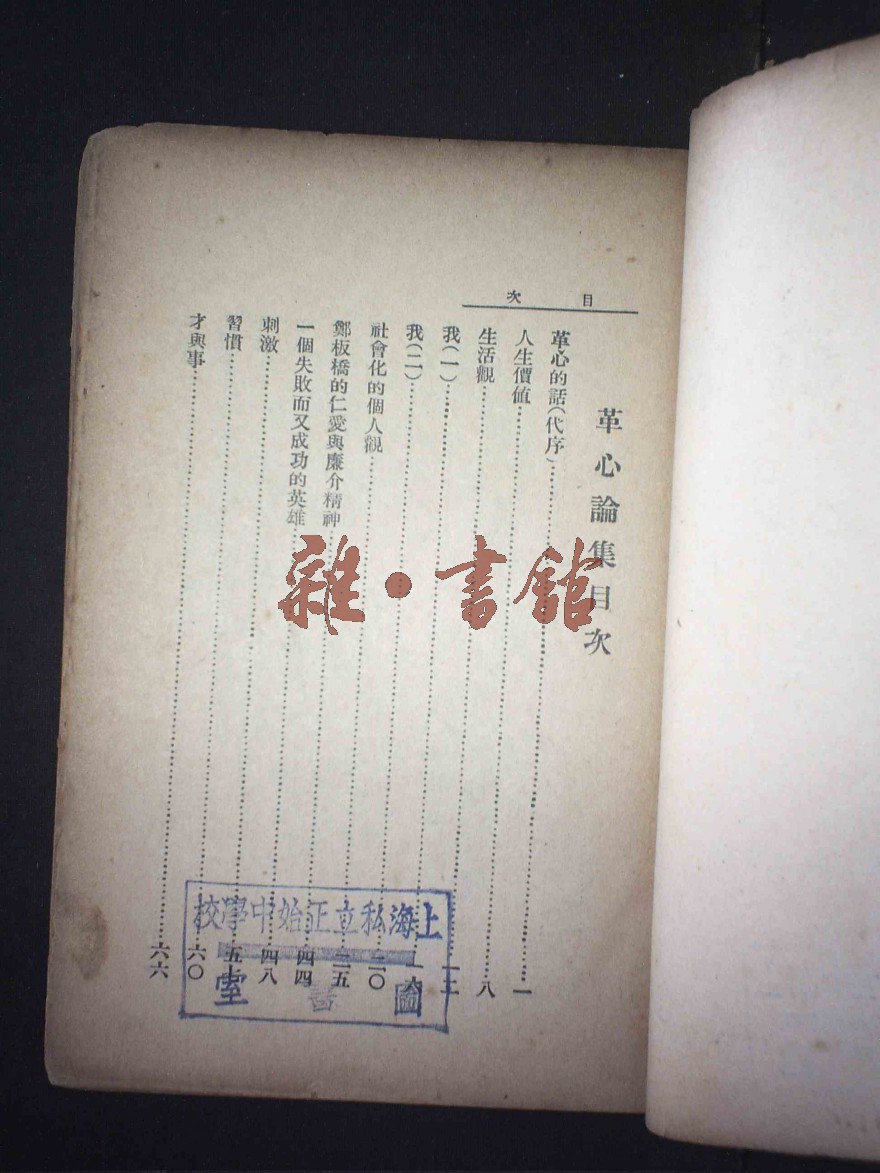 目次
革心論集目次
革心的話(代序)……一
人生價值……八
生活觀……一二
我(一)……一
我(二)……二〇
社會化的個人觀……五
鄭板橋的仁愛與廉介精神……四四
一個失敗而又成功的英雄……四八
刺激……五
習慣……六〇
才與事……六六
上海私立正始中學校
圖書室
雜·書館